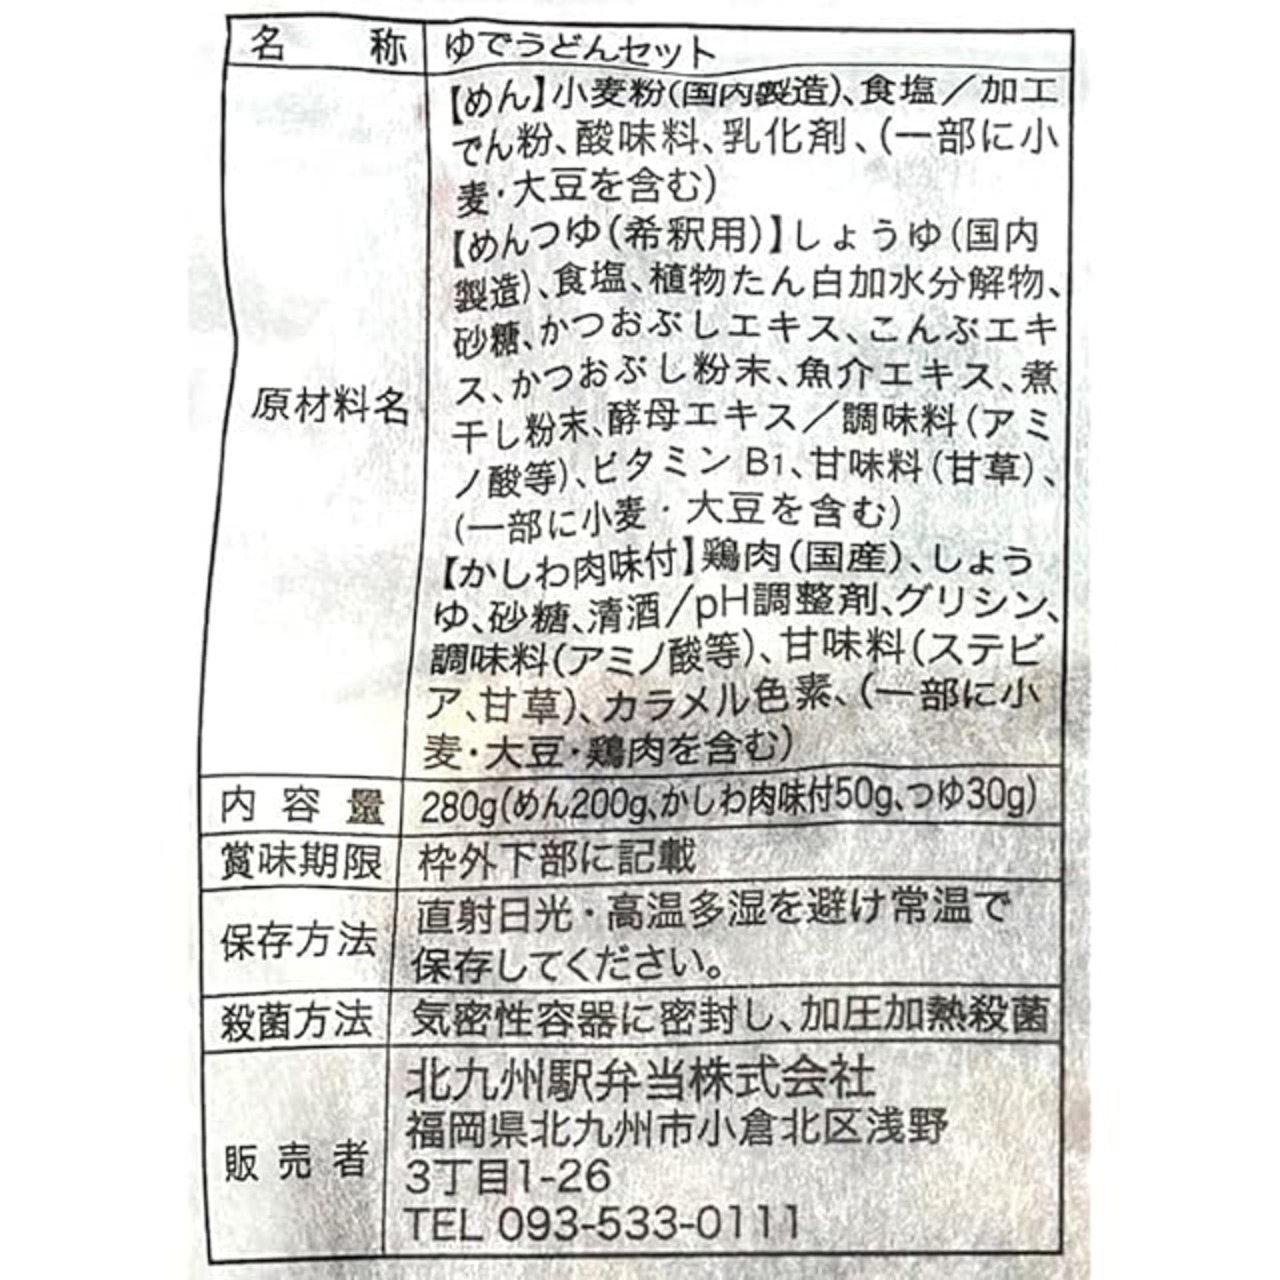 名称 ゆでうどんセット
原材料名
【めん】小麦粉(国内製造)、食塩／加工
でん粉、酸味料、乳化剤、(一部に小
麦・大豆を含む)
【めんつゆ(希釈用)】しょうゆ(国内
製造)、食塩、植物たん白加水分解物、
砂糖、かつおぶしエキス、こんぶエキ
ス、かつおぶし粉末、魚介エキス、煮
干し粉末、酵母エキス／調味料(アミ
ノ酸等)、ビタミンB1、甘味料(甘草)、
(一部に小麦・大豆を含む)
【かしわ肉味付】鶏肉(国産)、しょう
ゆ、砂糖、清酒/pH調整剤、グリシン、
調味料(アミノ酸等)、甘味料(ステビ
ア、甘草)、カラメル色素、(一部に小
麦・大豆・鶏肉を含む)
内容量 280g(めん200g、かしわ肉味付50g、つゆ30g)
賞味期限 枠外下部に記載
保存方法
直射日光・高温多湿を避け常温で
保存してください。
殺菌方法 気密性容器に密封し、加圧加熱殺菌
販売者
北九州駅弁当株式会社
福岡県北九州市小倉北区浅野
3丁目1-26
TEL 093-533-0111